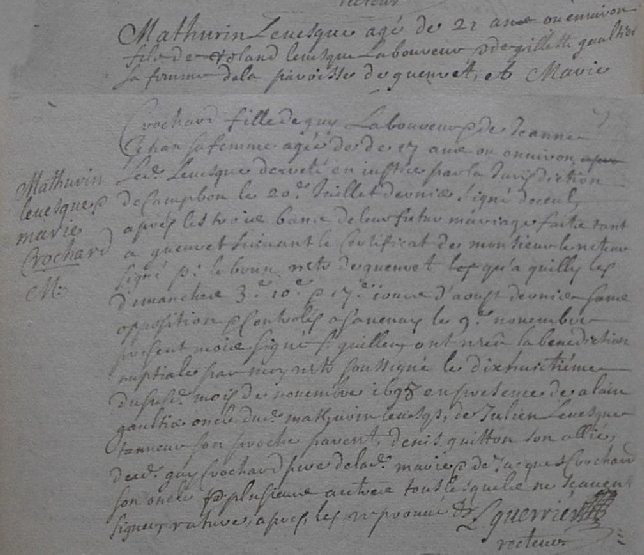 Mathurin Levesque agé de 22 ans ou environ
fils de Roland levesque Laboureur & de gillette gaultier
sa femme de la paroisse de quenvet, et Marie
Crochard fille de guy Laboureur & de Jeanne
sa femme agée de 17 ans ou environ,
Led. Levesque decreté en justice par la Jurisdiction
de Campbon le 20e Juillet dernier Signé
après les trois bans de leur futur mariage faits tant
a quenvet suivant le Certificat de monsieur le recteur
signé le bourn rectr de quenvet qu'a quilly les
dimanches 3e 10e & 17e jours d'aoust dernier sans
opposition & Controlés a Savenay le 9e novembre
present mois signé quiller, ont receu la benediction
nuptiale par moy rectr soussigné le dixhuitiéme
dusd. mois de novembre 1698 en presence de alain
gaultier oncle dud. mathurin levesqs, de Julien Levesque
tanneur son proche parent, denis guitton son allié,
dud. guy Crochard pere de lad. marie & de Jacques Crochard
son oncle & plusieurs autres tous lesquels ne scavent
signer
L guerrier
recteur
Mathurin
levesque &
marie
Crochard
M.